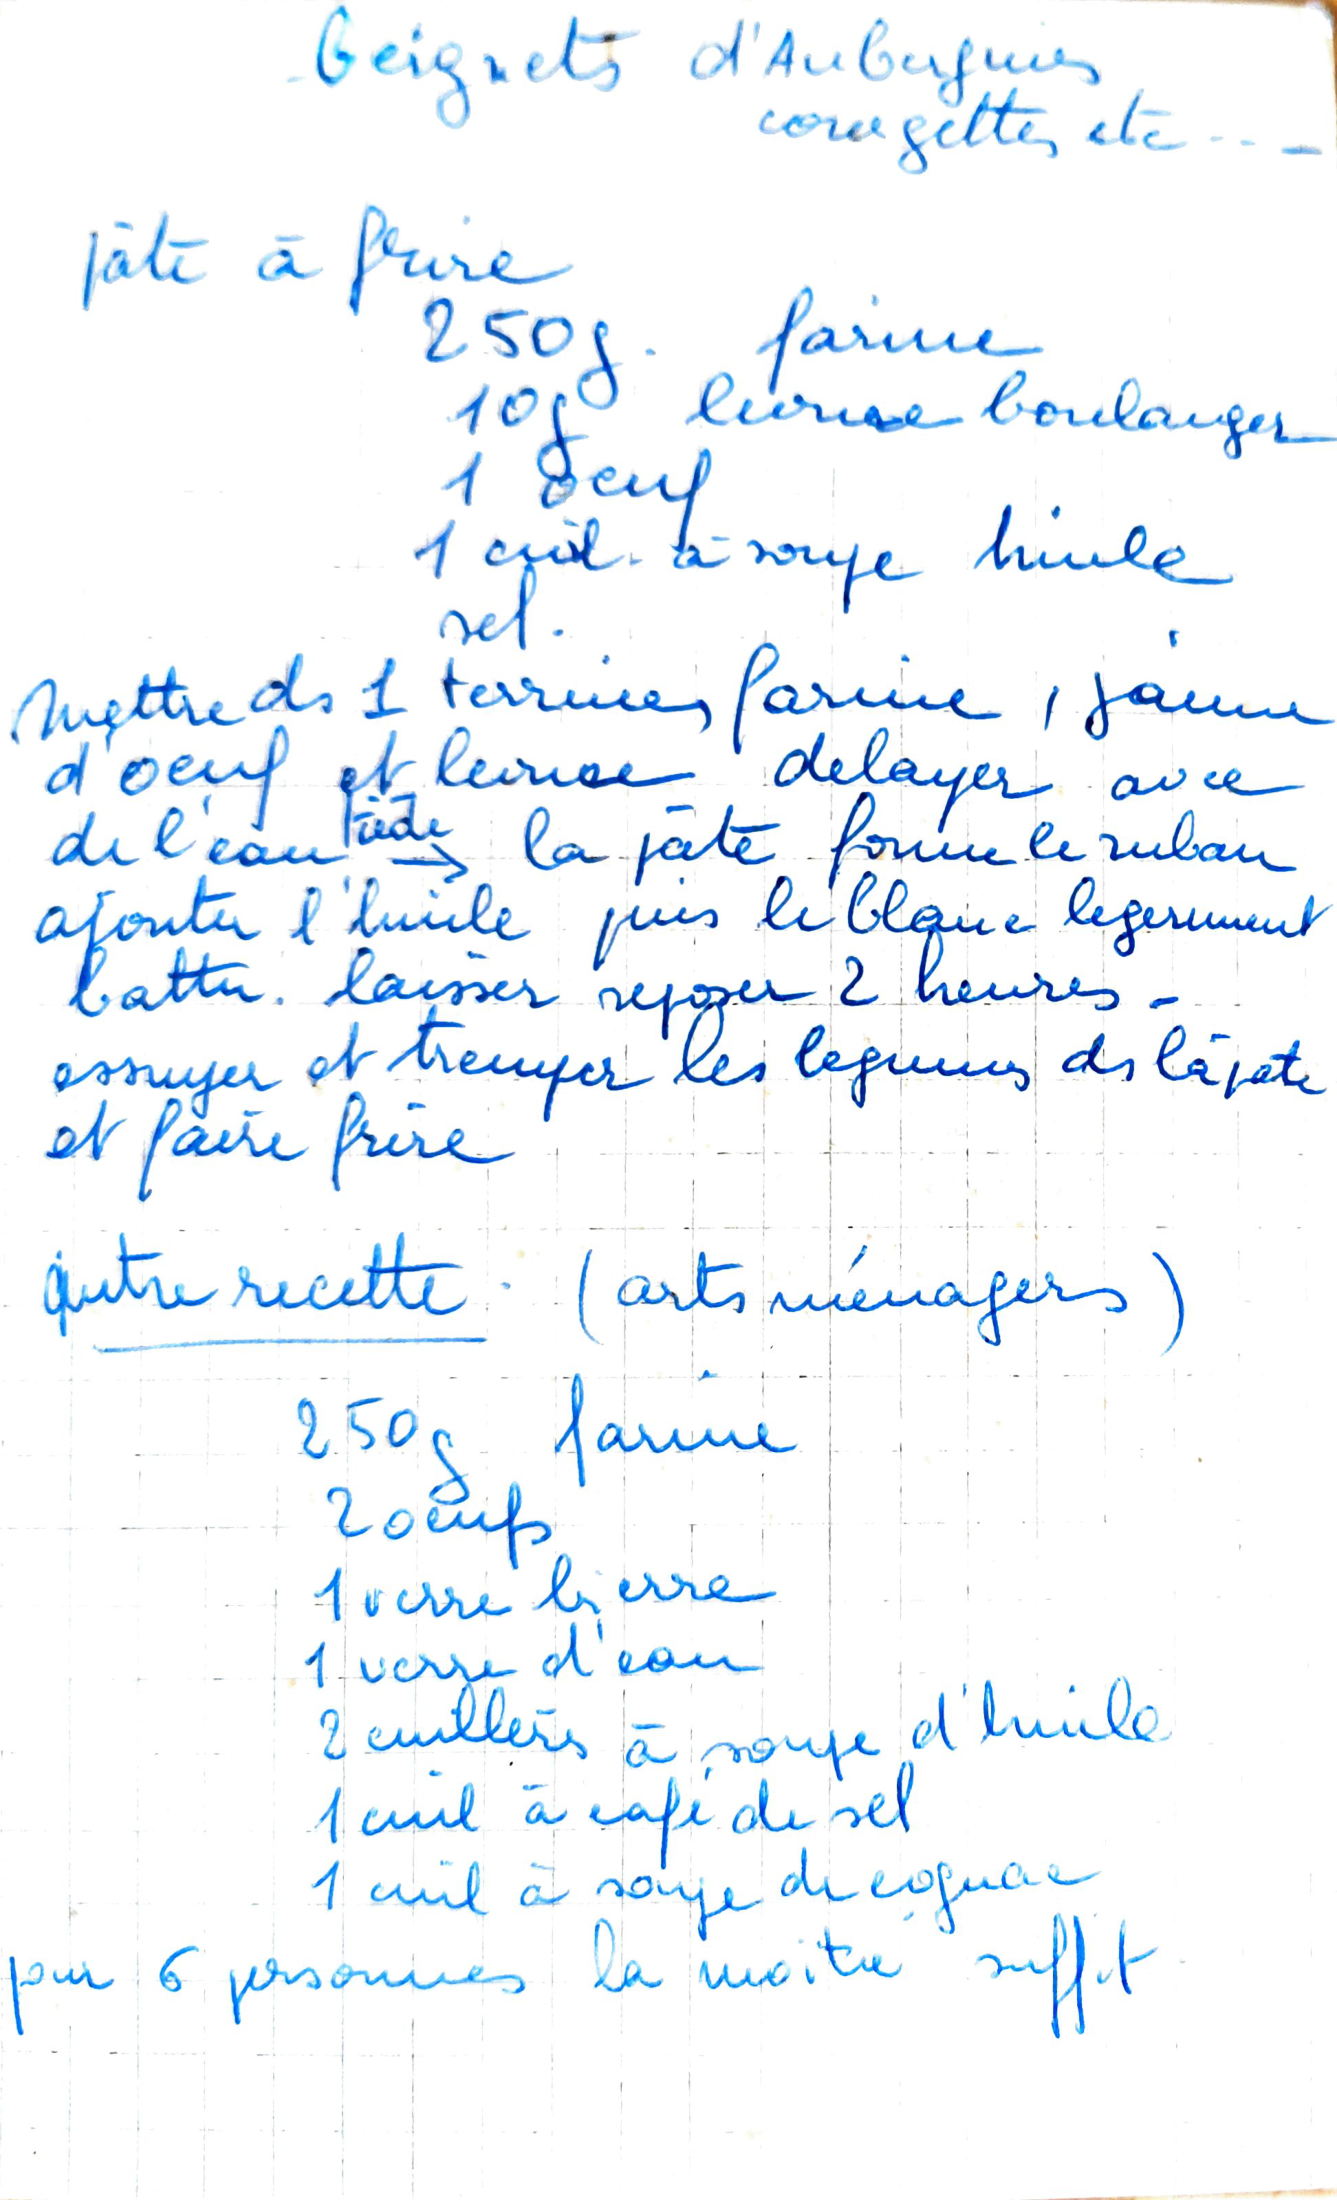 Beignets d'Aubergines
courgettes etc...-
pâte à frire
250g. farine
10g levure boulanger
1 oeuf
1 cuil. à soupe huile
sel.
Mettre ds 1 terrine, farine, jaune
d'oeuf et levure delayer avec
de l'eau tiède → la pâte forme le ruban
ajouter l'huile puis le blanc legerement
battu. laisser reposer 2 heures -
essuyer et tremper les legumes ds la pate
et faire frire
Autre recette. (arts ménagers)
250g farine
2 oeufs
1 verre bierre
1 verre d'eau
2 cuillères à soupe d'huile
1 cuil à café de sel
1 cuil à soupe de cognac
pour 6 personnes la moitié suffit